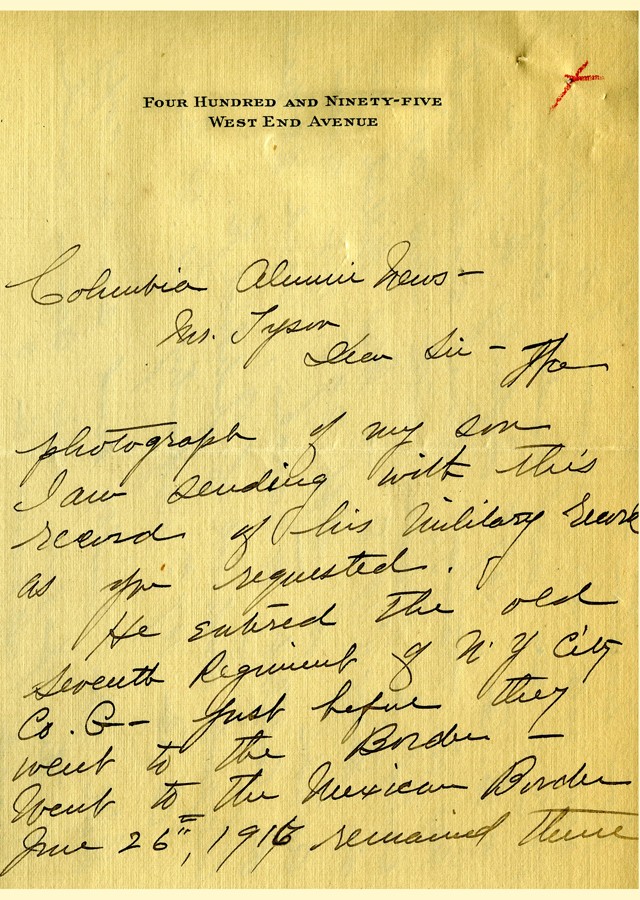 FOUR HUNDRED AND NINETY-FIVE
WEST END AVENUE
Columbia Alumni News—
Mr. Tyson
Dear Sir— The
photograph of my son
I am sending with this
record of his military record
as you requested.
He entered the old
Seventh Regiment of N.Y City
Co. G— just before they
went to the Border—
Went to the Mexican Border
June 26", 1916 remained there